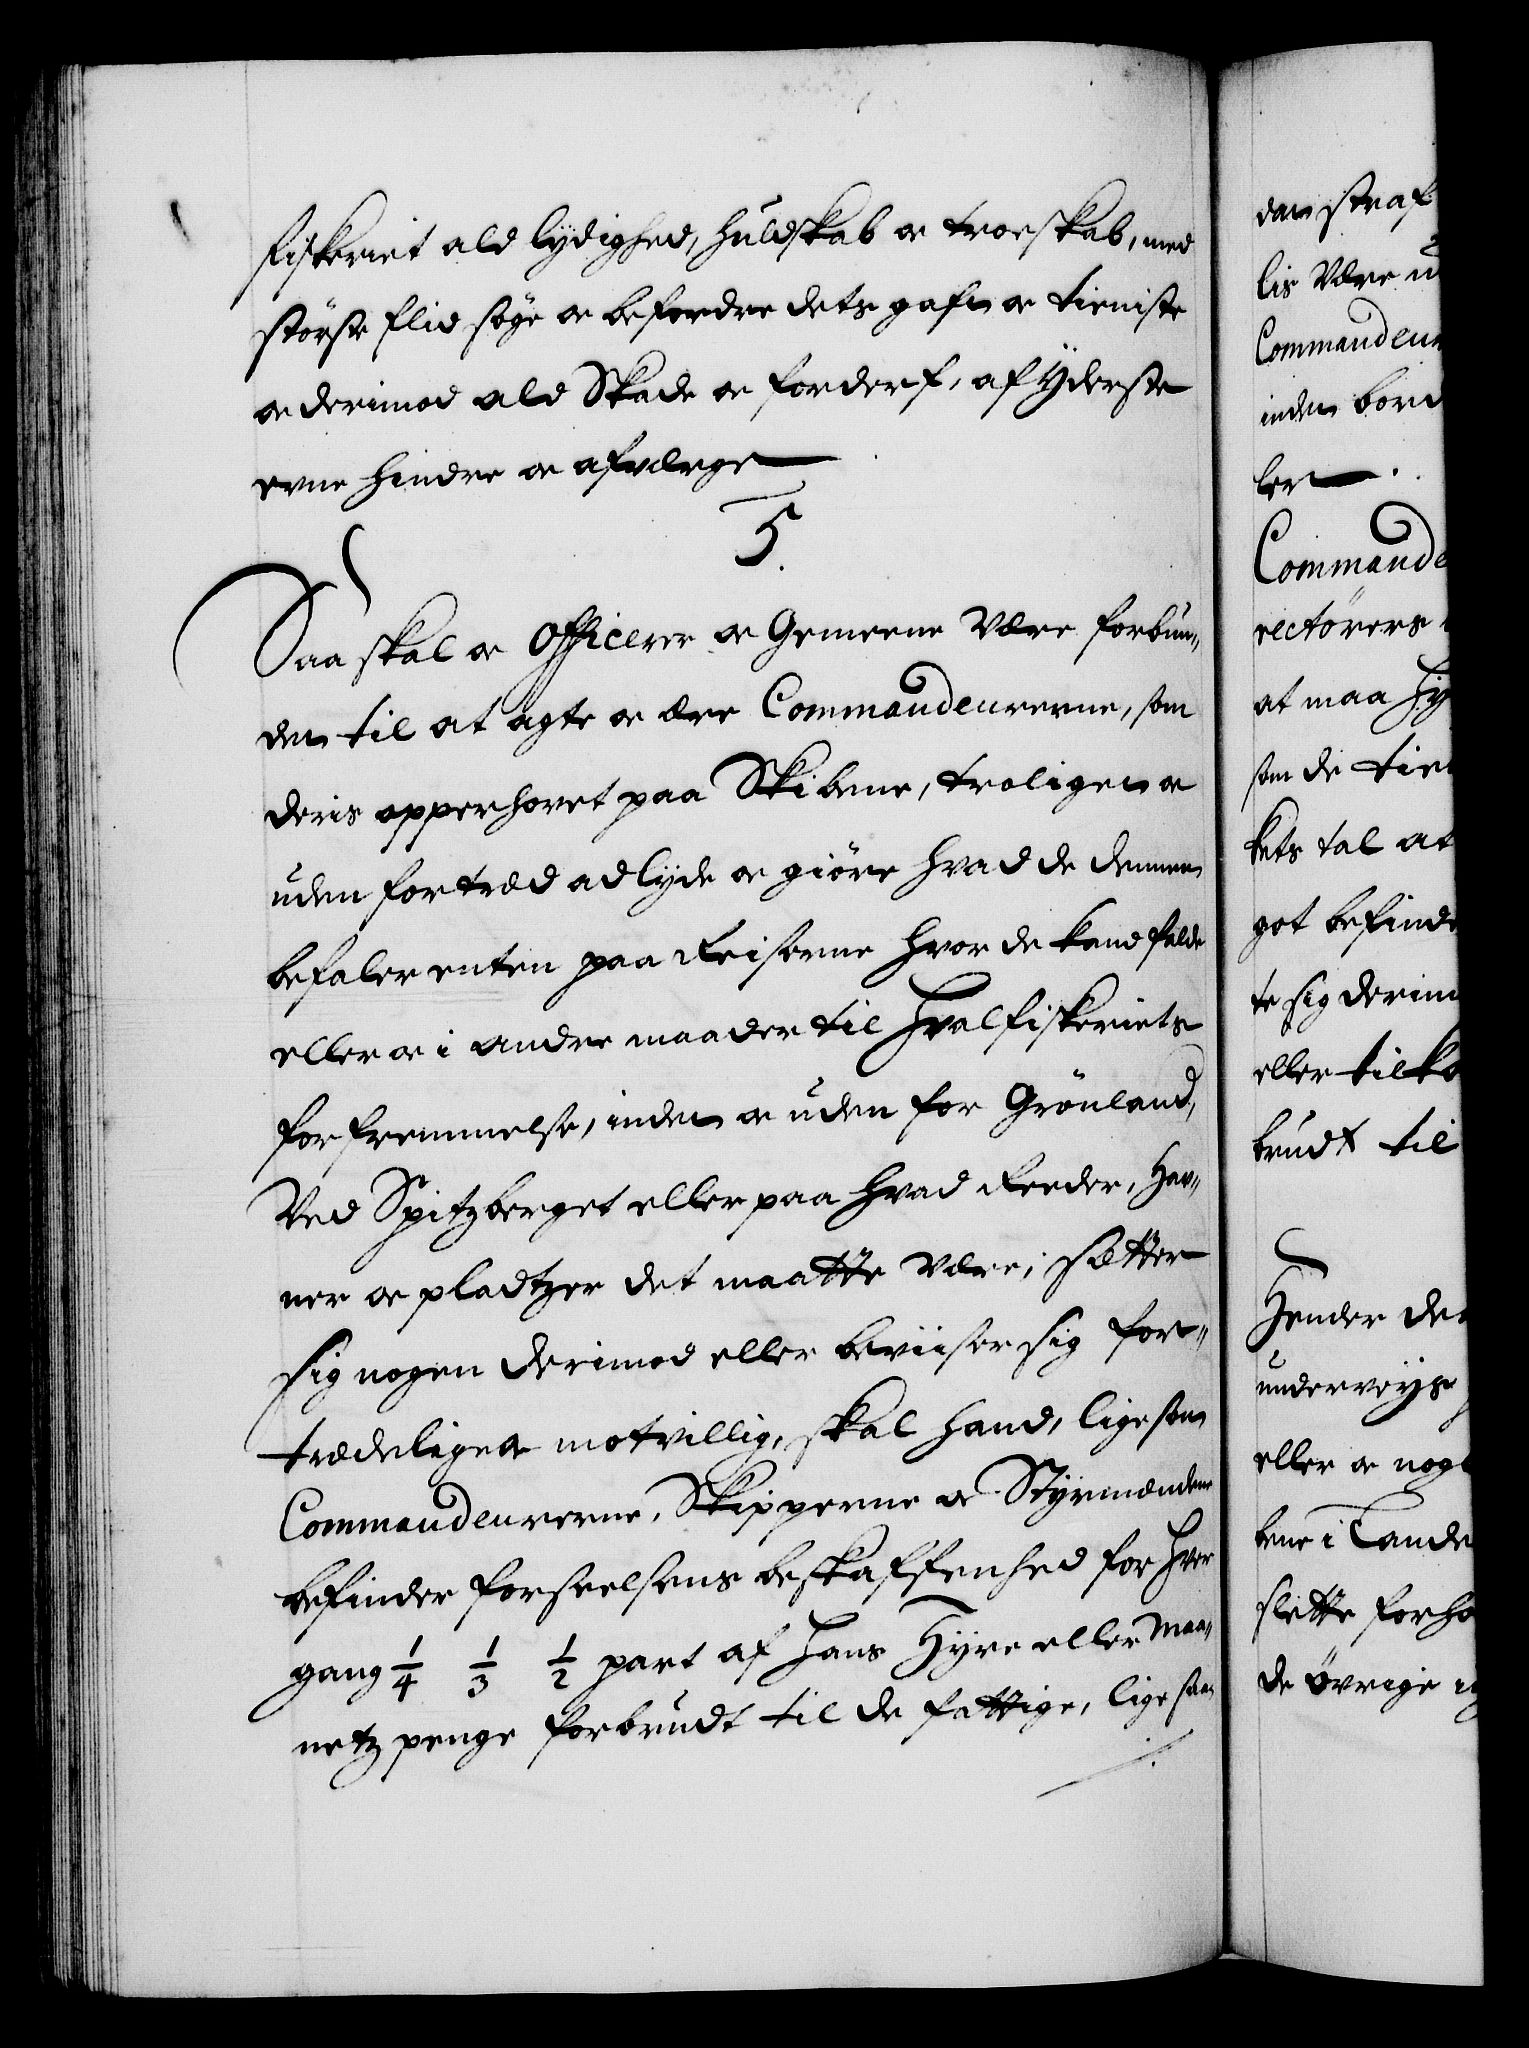 fiskeriet ald lydighed, huldskab og troeskab, med
störste flid söge og befordre dets gafn og tieniste
og derimod ald Skade og forderf, af Yderste
evne hindre og afværge
5.
Saa skal og Officerer og Gemeene Være forbun„
den til at agte og ære Commandeurerne, som
deris opperhovet paa Skibene, troligen og
uden fortræd adlyde og giöre hvad de dennem
befaler enten paa Reiserne hvor de kand falde
eller og i andre maader til Hvalfiskeriets
forfremmelse, inden og uden for Grönland,
Ved Spitzberget eller paa hvad Reeder, Hav„
ner og pladtzer det maatte Være; sætter
sig nogen derimod eller beviiser sig for„
trædelig og motvillig, skal hand, ligesom
Commandeurerne, Skipperne og Styrmændene
befinder forseelsens beskaffenhed for hver
gang 1/4 1/3 1/2 part af hans Hyre eller Maa„
netz penge forbrudt til de fattige, lige saa
dan straf
lis Være
Commandeur
inden bord
ler
Commande
rectörers
at maa Hy
som de tien
kets tal at
got befinde
te sig derim
eller tilko
brudt til
Hender de
underveys
eller og nog
bene i Lande
slette forho
de övrige